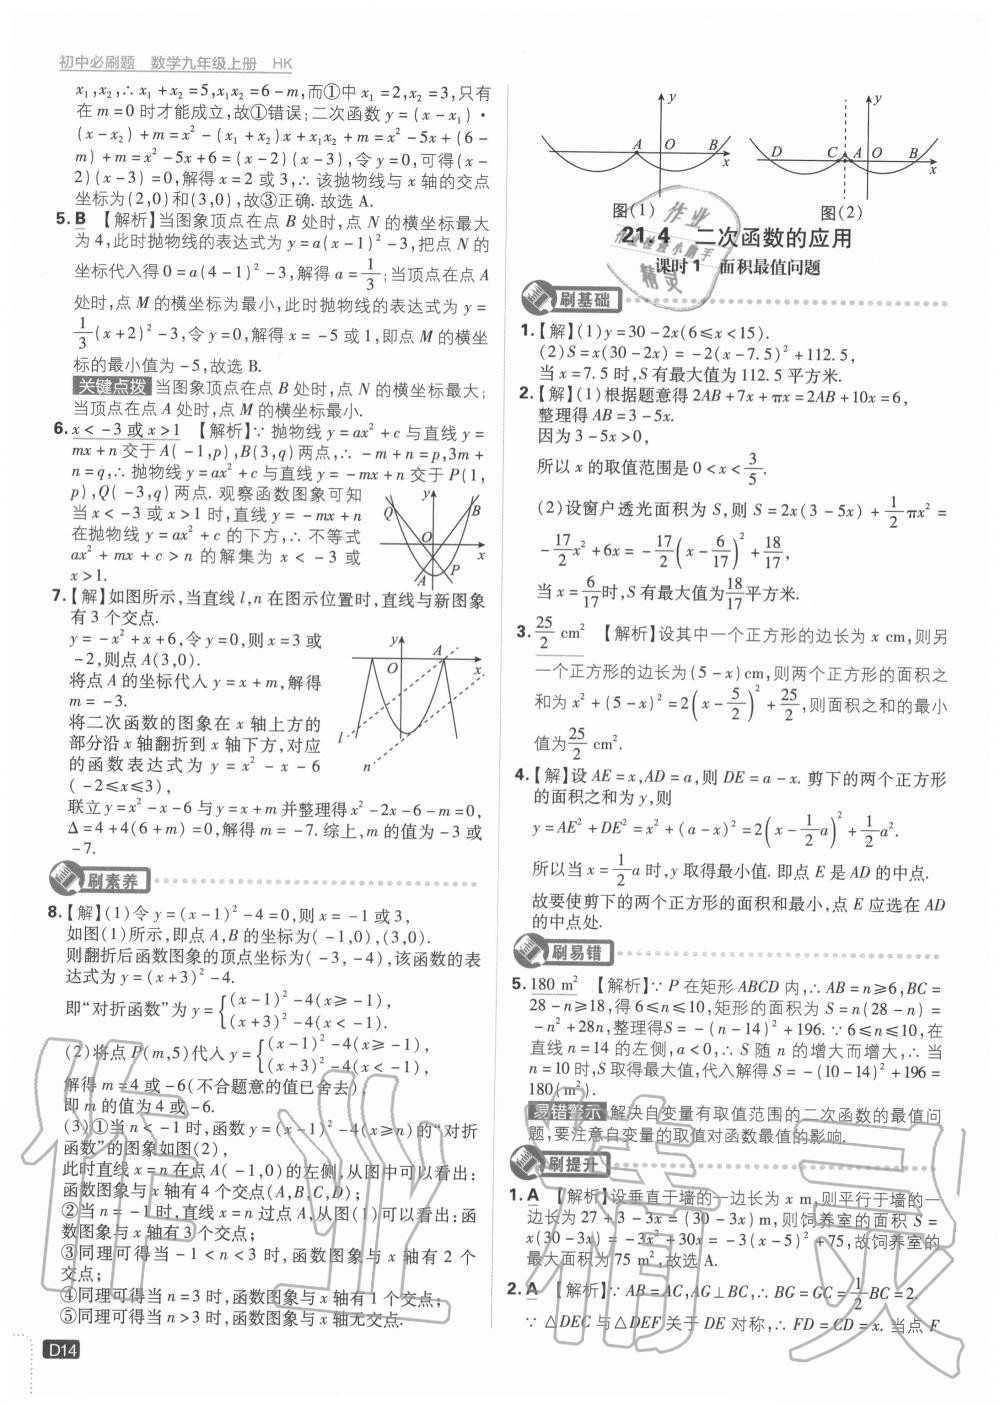 初中必刷题 数学九年级上册 HK
x₁,x₂,∴x₁+x₂=5,x₁x₂=6-m,而①中x₁=2,x₂=3,只有
在m=0时才能成立,故①错误;二次函数y=(x-x₁)·
(x-x₂)+m=x²-(x₁+x₂)x+x₁x₂+m=x²-5x+(6-
m)+m=x²-5x+6=(x-2)(x-3),令y=0,可得(x-
2)(x-3)=0,解得x=2或3,∴该抛物线与x轴的交点
坐标为(2,0)和(3,0),故③正确.故选A.
5.B 【解析】当图象顶点在点B处时,点N的横坐标最大
为4,此时抛物线的表达式为y=a(x-1)²-3,把点N的
坐标代入得0=a(4-1)²-3,解得a=1/3;当顶点在点A
处时,点M的横坐标为最小,此时抛物线的表达式为y=
1/3(x+2)²-3,令y=0,解得x=-5或1,即点M的横坐
标的最小值为-5,故选B.
关键点拨 当图象顶点在点B处时,点N的横坐标最大;
当顶点在点A处时,点M的横坐标最小.
6.x<-3或x>1 【解析】∵抛物线y=ax²+c与直线y=
mx+n交于A(-1,p),B(3,q)两点,∴-m+n=p,3m+
n=q,∴抛物线y=ax²+c与直线y=-mx+n交于P(1,
p),Q(-3,q)两点.观察函数图象可知
当x<-3或x>1时,直线y=-mx+n
在抛物线y=ax²+c的下方,∴不等式
ax²+mx+c>n的解集为x<-3或
x>1.
y
Q
B
O
x
A
P
7.【解】如图所示,当直线l,n在图示位置时,直线与新图象
有3个交点.
y=-x²+x+6,令y=0,则x=3或
-2,则点A(3,0).
将点A的坐标代入y=x+m,解得
m=-3.
将二次函数的图象在x轴上方的
部分沿x轴翻折到x轴下方,对应
的函数表达式为y=x²-x-6
(-2≤x≤3),
y
A
O
x
l
n
联立y=x²-x-6与y=x+m并整理得x²-2x-6-m=0,
Δ=4+4(6+m)=0,解得m=-7.综上,m的值为-3或
-7.
刷素养
8.【解】(1)令y=(x-1)²-4=0,则x=-1或3,
如图(1)所示,即点A,B的坐标为(-1,0),(3,0).
则翻折后函数图象的顶点坐标为(-3,-4),该函数的表
达式为y=(x+3)²-4.
即“对折函数”为y={(x-1)²-4(x≥-1),
(x+3)²-4(x<-1).
(2)将点P(m,5)代入y={(x-1)²-4(x≥-1),
(x+3)²-4(x<-1),
解得m=4或-6(不合题意的值已舍去).
即m的值为4或-6.
(3)①当n<-1时,函数y=(x-1)²-4(x≥n)的“对折
函数”的图象如图(2),
此时直线x=n在点A(-1,0)的左侧,从图中可以看出:
函数图象与x轴有4个交点(A,B,C,D);
②当n=-1时,直线x=n过点A,从图中可以看出:函
数图象与x轴有3个交点;
③同理可得当-1<n<3时,函数图象与x轴有2个
交点;
④同理可得当n=3时,函数图象与x轴有1个交点;
⑤同理可得当n>3时,函数图象与x轴无交点.
D14
y
A
O
B
x
图(1)
y
D
C
A
O
B
x
图(2)
21.4 二次函数的应用
课时1 面积最值问题
刷基础
1.【解】(1)y=30-2x(6≤x<15).
(2)S=x(30-2x)=-2(x-7.5)²+112.5,
当x=7.5时,S有最大值为112.5平方米.
2.【解】(1)根据题意得2AB+7x+πx=2AB+10x=6,
整理得AB=3-5x.
因为3-5x>0,
所以x的取值范围是0<x<3/5.
(2)设窗户透光面积为S,则S=2x(3-5x)+1/2πx²=
-17/2x²+6x=-17/2(x-6/17)²+18/17,
当x=6/17时,S有最大值为18/17平方米.
3.25/2 cm² 【解析】设其中一个正方形的边长为x cm,则另
一个正方形的边长为(5-x)cm,则两个正方形的面积之
和为x²+(5-x)²=2(x-5/2)²+25/2,则面积之和的最小
值为25/2 cm².
4.【解】设AE=x,AD=a,则DE=a-x.剪下的两个正方形
的面积之和为y,则
y=AE²+DE²=x²+(a-x)²=2(x-1/2a)²+1/2a².
所以当x=1/2a时,y取得最小值.即点E是AD的中点.
故要使剪下的两个正方形的面积和最小,点E应选在AD
的中点处.
刷易错
5.180 m² 【解析】∵P在矩形ABCD内,∴AB=n≥6,BC=
28-n≥18,得6≤n≤10,矩形的面积为S=n(28-n)=
-n²+28n,整理得S=-(n-14)²+196.∵6≤n≤10,在
直线n=14的左侧,a<0,∴S随n的增大而增大,∴当
n=10时,S取得最大值,代入解得S=-(10-14)²+196=
180(m²).
易错警示 解决自变量有取值范围的二次函数的最值问
题,要注意自变量的取值对函数最值的影响.
刷提升
1.A 【解析】设垂直于墙的一边长为x m,则平行于墙的一
边长为27+3-3x=(30-3x)m,则饲养室的面积S=
x(30-3x)=-3x²+30x=-3(x-5)²+75,故饲养室的
最大面积为75 m²,故选A.
2.A 【解析】∵AB=AC,AG⊥BC,∴BG=GC=1/2BC=2.
∵△DEC与△DEF关于DE对称,∴FD=CD=x.当点F
作业
作业检查小助手
精灵
作业精灵